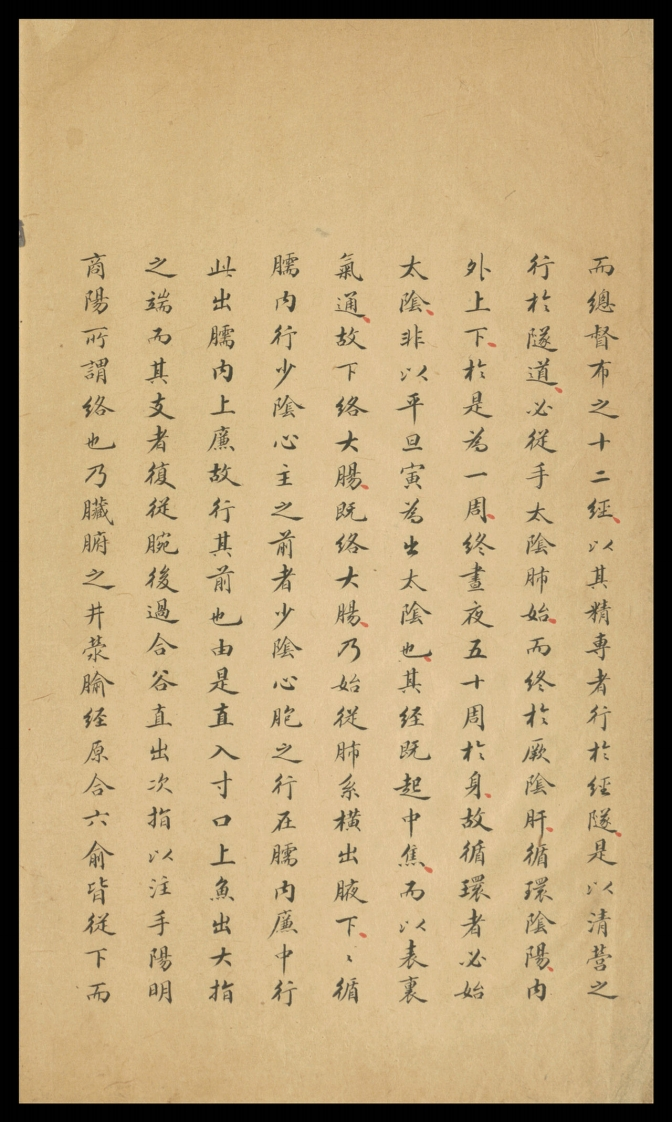 而總督布之十二經以其精專者行於經隧是以清營之
行於隧道必從手太陰肺始而終於厥陰肝循環陰陽內
外上下於是為一周終晝夜五十周於身故循環者必始
太陰非以平旦寅為出太陰也其經既起中焦而以表裏
氣通故下絡大腸既絡大腸乃始從肺系橫出腋下〻循
臑內行少陰心主之前者少陰心胞之行在臑內廉中行
此出臑內上廉故行其前也由是直入寸口上魚出大指
之端而其支者復從腕後過合谷直出次指以注手陽明
商陽所謂絡也乃臟腑之井滎腧經原合六俞皆從下而